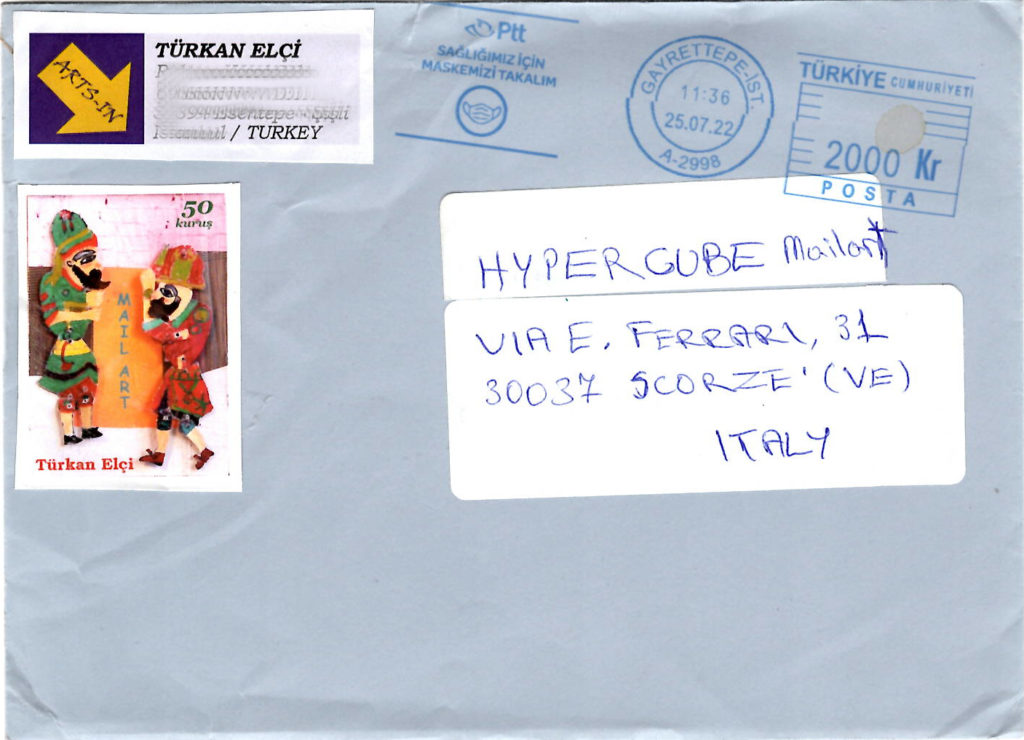 ARTS-IN
TÜRKAN ELÇİ
Esentepe - Şişli
İstanbul / TURKEY
Ptt
SAĞLIĞIMIZ İÇİN
MASKEMİZİ TAKALIM
GAYRETTEPE-İST.
11:36
25.07.22
A-2998
TÜRKİYE CUMHURİYETİ
2000 Kr
POSTA
50
kuruş
MAIL ART
Türkan Elçi
HYPERCUBE Mailart
VIA E. FERRARI, 31
30037 SCORZE' (VE)
ITALY